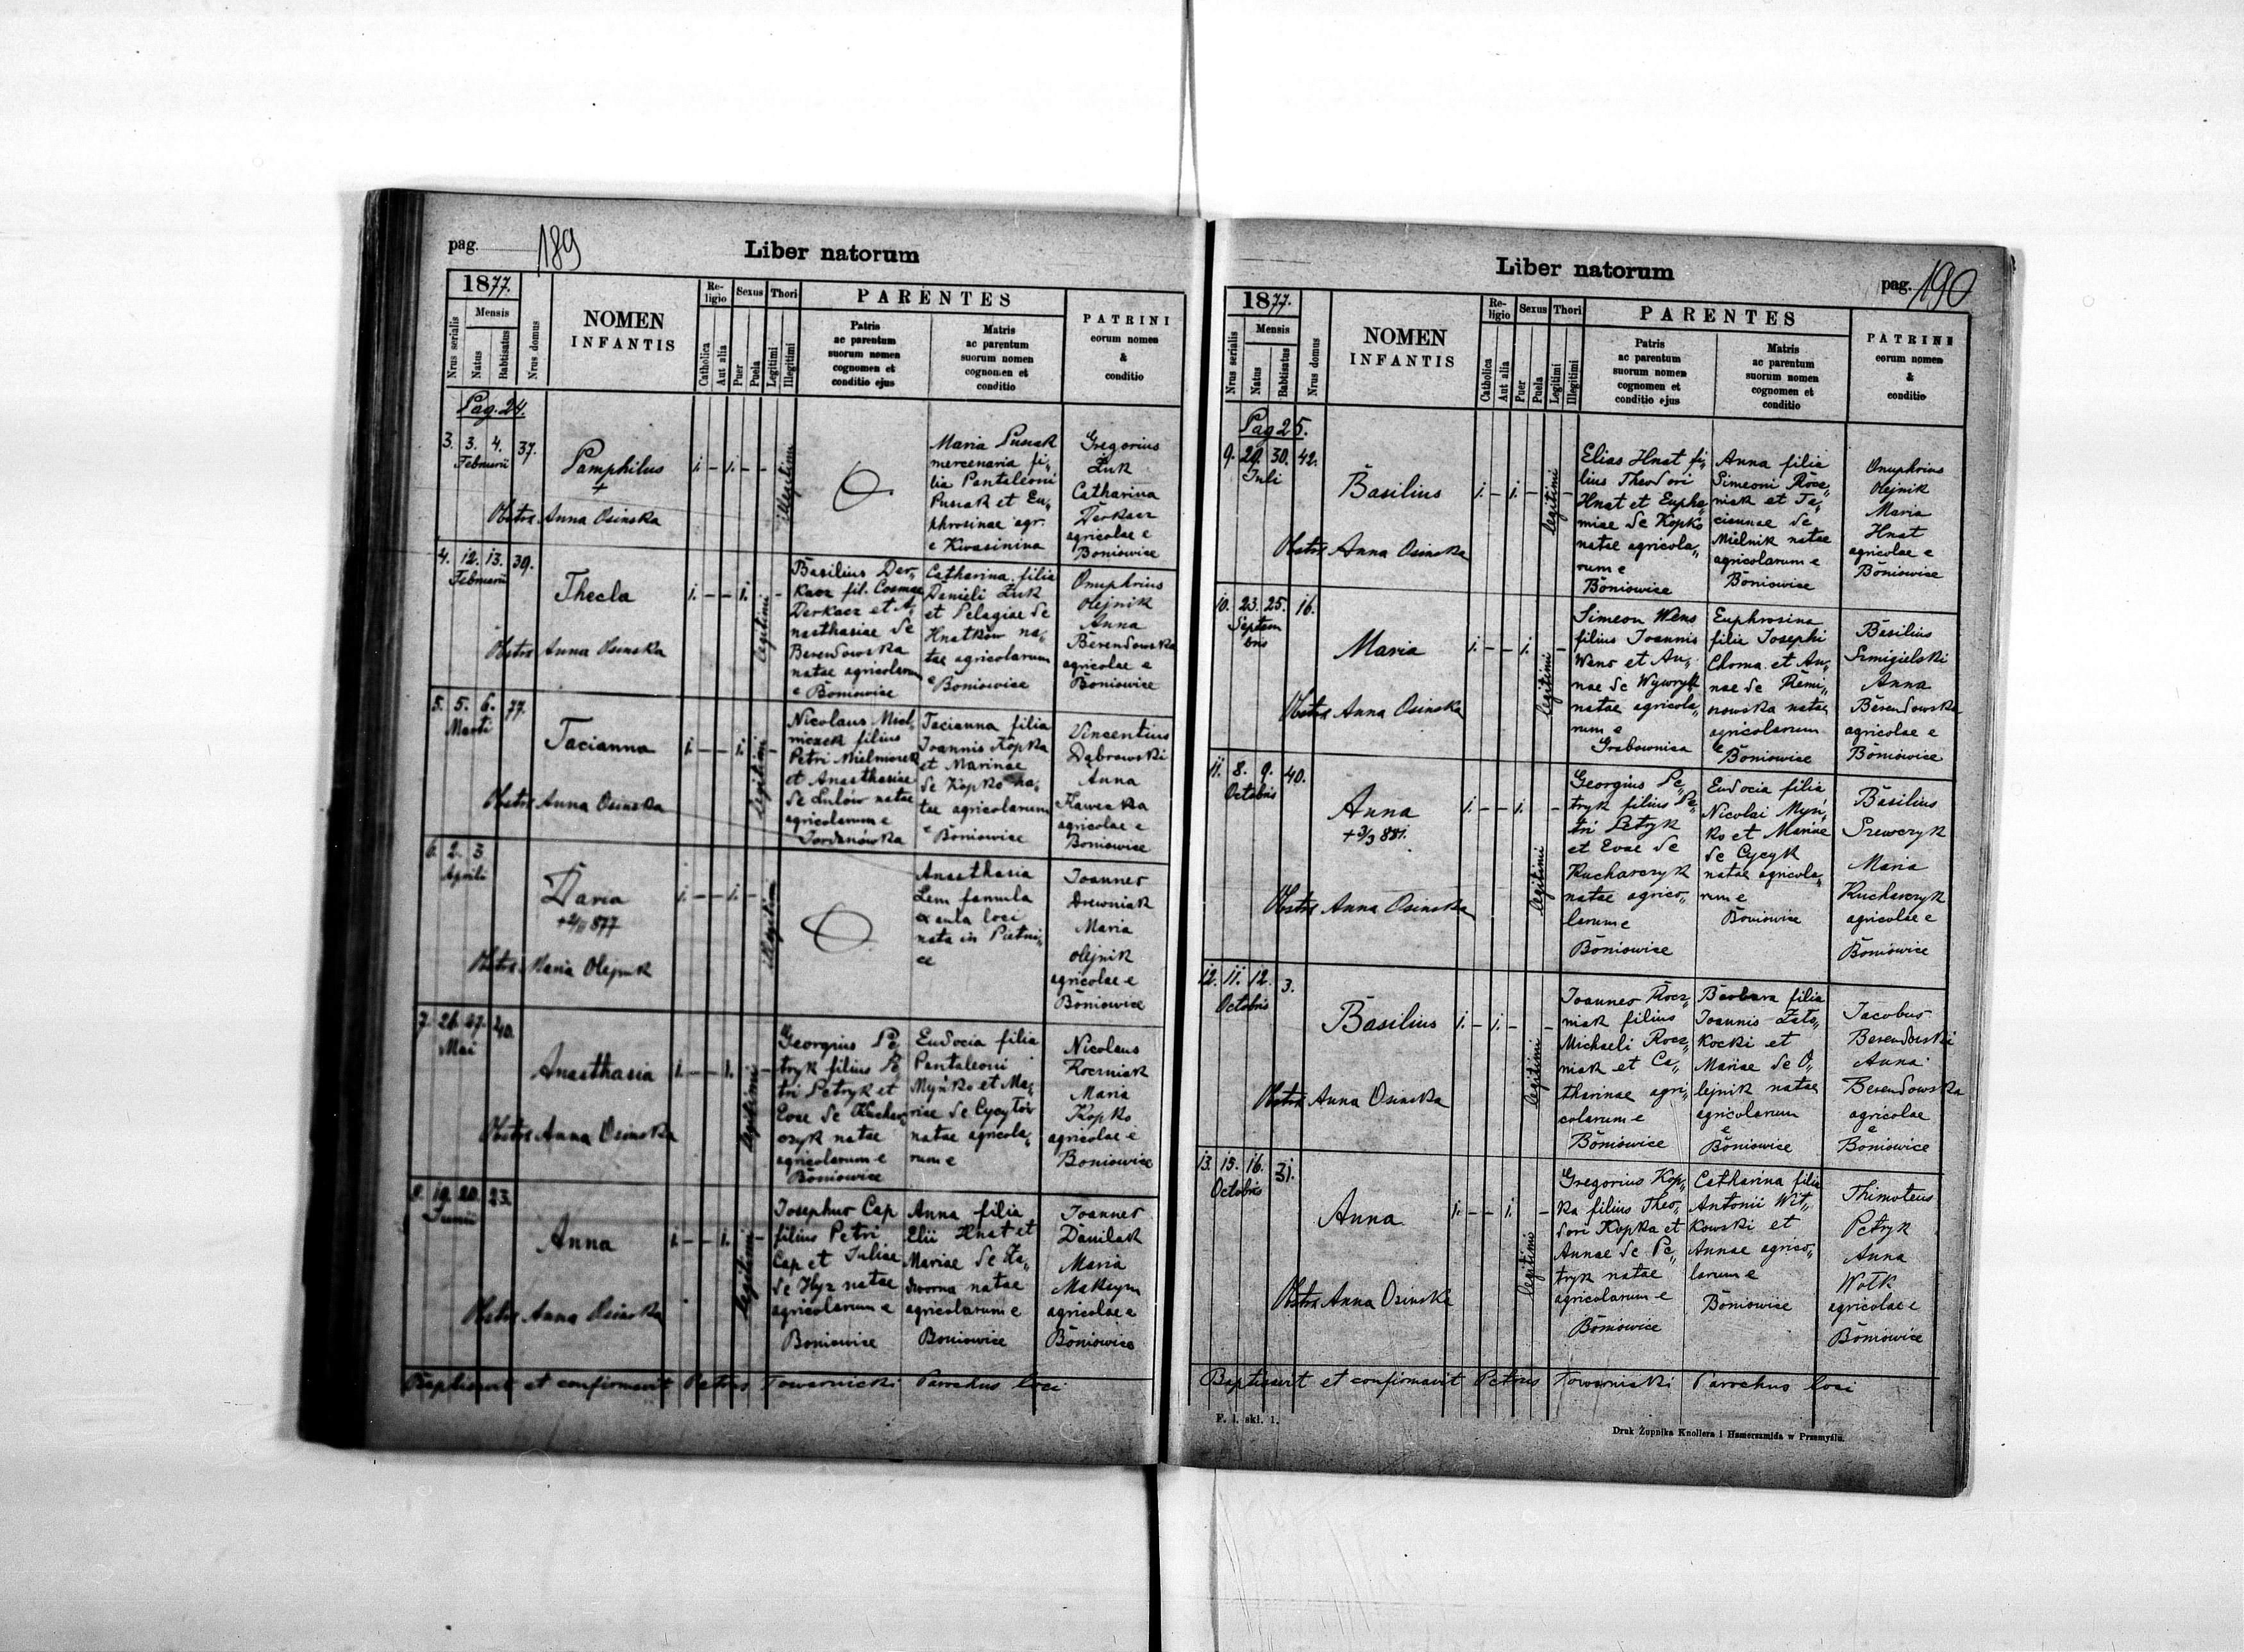 pag. 189
Liber natorum
1877.
Mensis
Nrus serialis
Natus
Babtisatus
Nrus domus
NOMEN
INFANTIS
Religio
Catholica
Aut alia
Sexus
Puer
Puela
Thori
Legitimi
Illegitimi
PARENTES
Patris
ac parentum
suorum nomen
cognomen et
conditio ejus
Matris
ac parentum
suorum nomen
cognomen et
conditio
PATRINI
eorum nomen
&
conditio
Pag. 24.
3. 3. 4. 37.
Februarii
Pamphilus
+
Obstx Anna Osinska
1. – 1. – –
illegitimi
Maria Pusiak
mercenaria fi„
lia Pantaleoni
Pusiak et Eu„
phrosinae agr.
e Kwasinina
Gregorius
Żuk
Catharina
Derkacz
agricolae e
Boniowice
4. 12. 13. 39.
Februarii
Thecla
Obstx Anna Osinska
1. – – 1. –
legitimi
Basilius Der„
kacz fil. Cosmae
Derkacz et A„
nasthasiae de
Berendowska
natae agricolarum
e Boniowice
Catharina filia
Danieli Żuk
et Pelagiae de
Hnatków na„
tae agricolarum
e Boniowice
Onuphrius
Olejnik
Anna
Berendowska
agricolae e
Boniowice
5. 5. 6. 77.
Marti
Tacianna
Obstx Anna Osinska
1. – – 1. –
legitimi
Nicolaus Miel„
niczek filius
Petri Mielniczek
et Anasthasiae
de Lulów natae
agricolarum e
Jordanówka
Tacianna filia
Joannis Kopka
et Marinae
de Kopko na„
tae agricolarum
e Boniowice
Vincentius
Dąbrowski
Anna
Kawecka
agricolae e
Boniowice
6. 2. 3.
Aprili
Daria
Obstx Maria Olejnik
1. – – 1. –
illegitimi
Anasthasia
Lem famula
ex aula loci
nata in Piatni„
ce
Joannes
Drewniak
Maria
Olejnik
agricolae e
Boniowice
7. 26. 27. 40.
Mai
Anasthasia
Obstx Anna Osinska
1. – – 1. –
legitimi
Georgius Pe„
tryk filius Pe„
tri Petryk et
Evae de Kuchar„
czyk natae
agricolarum e
Boniowice
Eudocia filia
Pantaleoni
Myńko et Ma„
riae de Cycyków
natae agricola„
rum e
Nicolaus
Roczniak
Maria
Kopko
agricolae e
Boniowice
8. 19. 20. 23.
Junii
Anna
Obstx Anna Osinska
1. – – 1. –
legitimi
Josephus Cap
filius Petri
Cap et Juliae
de Hyz natae
agricolarum e
Boniowice
Anna filia
Elii Hnat et
Mariae de Za„
dworna natae
agricolarum e
Boniowice
Joannes
Danilak
Maria
Maksym
agricolae e
Boniowice
Baptisavit et confirmavit Petrus Towarnicki Parochus loci
Liber natorum
pag. 190
1877.
Mensis
Nrus serialis
Natus
Babtisatus
Nrus domus
NOMEN
INFANTIS
Religio
Catholica
Aut alia
Sexus
Puer
Puela
Thori
Legitimi
Illegitimi
PARENTES
Patris
ac parentum
suorum nomen
cognomen et
conditio ejus
Matris
ac parentum
suorum nomen
cognomen et
conditio
PATRINI
eorum nomen
&
conditio
Pag 25.
9. 29. 30. 42.
Juli
Basilius
Obstx Anna Osinska
1. – 1. – –
legitimi
Elias Hnat fi„
lius Theodori
Hnat et Euphe„
miae de Kopko
natae agricola„
rum e
Boniowice
Anna filia
Simeoni Rocz„
niak et Ta„
ciannae de
Mielnik natae
agricolarum e
Boniowice
Onuphrius
Olejnik
Maria
Hnat
agricolae e
Boniowice
10. 23. 25. 16.
Septem
bris
Maria
Obstx Anna Osinska
1. – – 1. –
legitimi
Simeon Wens
filius Joannis
Wens et An„
nae de Wywryk
natae agricola„
rum e
Grabownica
Euphrosina
filia Josephi
Choma et An„
nae de Remi„
nowska natae
agricolarum
e Boniowice
Basilius
Smigielski
Anna
Berendowska
agricolae e
Boniowice
11. 8. 9. 40.
Octobris
Anna
+ 3/3 881.
Obstx Anna Osinska
1. – – 1. –
legitimi
Georgius Pe„
tryk filius Pe„
tri Petryk
et Evae de
Kucharczyk
natae agrico„
larum e
Boniowice
Eudocia filia
Nicolai Myń„
ko et Mariae
de Cycyk
natae agricola„
rum e
Boniowice
Basilius
Szewczyk
Maria
Kucharczyk
agricolae e
Boniowice
12. 11. 12. 3.
Octobris
Basilius
Obstx Anna Osinska
1. – 1. – –
legitimi
Joannes Rocz„
niak filius
Michaeli Rocz„
niak et Ca„
tharinae agri„
colarum e
Boniowice
Barbara filia
Joannis Zato„
kocki et
Mariae de O„
lejnik natae
agricolarum
e
Boniowice
Jacobus
Berendowski
Anna
Berendowska
agricolae
e
Boniowice
13. 15. 16. 31.
Octobris
Anna
Obstx Anna Osinska
1. – – 1. –
legitimi
Gregorius Kop„
ka filius Theo„
dori Kopka et
Annae de Pe„
tryk natae
agricolarum e
Boniowice
Catharina filia
Antonii Wit„
kowski et
Annae agrico„
larum e
Boniowice
Thimoteus
Petryk
Anna
Wołk
agricolae e
Boniowice
Baptisavit et confirmavit Petrus Towarnicki Parochus loci
F. l. skł. 1.
Druk Żupnika Knollera i Hamerszmida w Przemyślu.